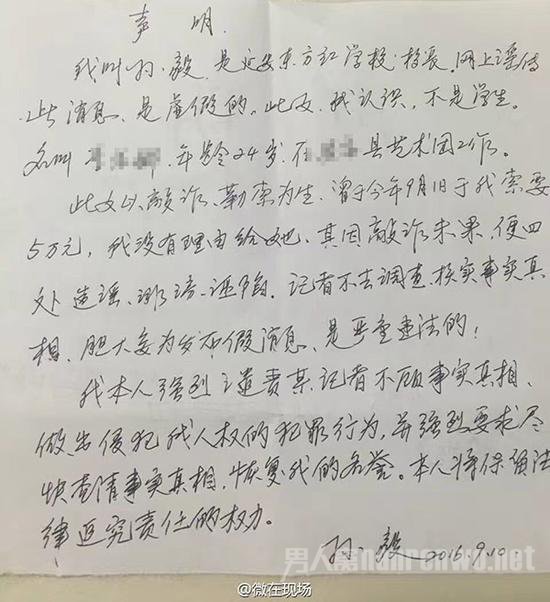 声 明.
我叫孙毅.是延安东方红学校校长.网上谣传
此消息.是虚假的。此女.我认识.不是学生。
名叫 .年龄24岁.在 县艺术团工作。
此女以敲诈.勒索为生.曾于今年9月1日于我索要
5万元,我没有理由给她.其因敲诈未果,便四
处造谣、诽谤-诬陷.记者不去调查.核实事实真
相.胆大妄为发布假消息、是严重违法的!
我本人强烈谴责某记者不顾事实真相、
做出侵犯我人权的犯罪行为,并强烈要求尽
快查清事实真相.恢复我的名誉。本人将保留法
律追究责任的权力。
孙毅 2016.9.10.
男人窝nanrenwo.net
@微在现场